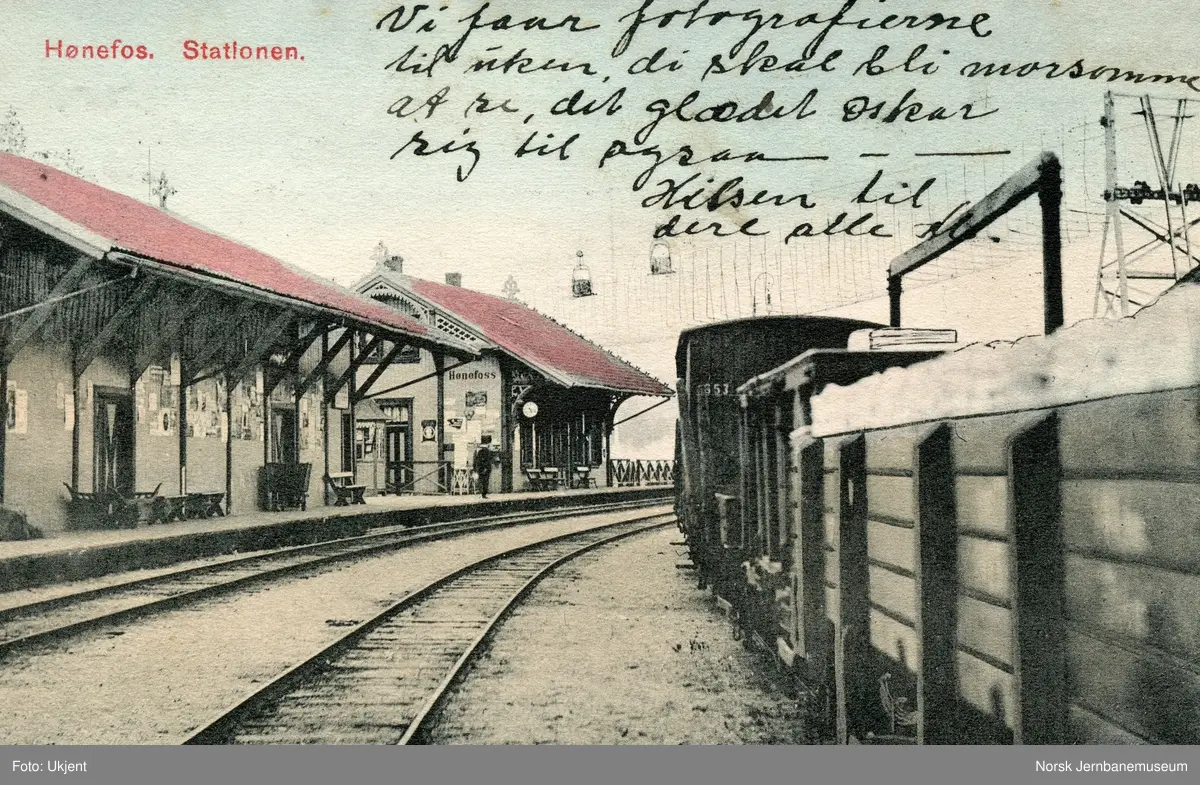 Hønefos. Stationen.
Vi faar fotografierne
til uken, di skal bli morsomme
at se, det glædet Oskar
sig til ogsaa — — —
Hilsen til
dere alle
Hønefoss
6653
Foto: Ukjent
Norsk Jernbanemuseum